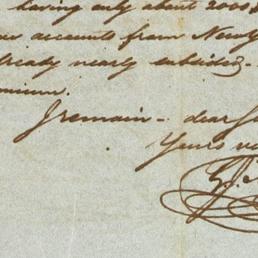 having only about 2000
accounts from New
already nearly subsided
I remain - dear
Yours